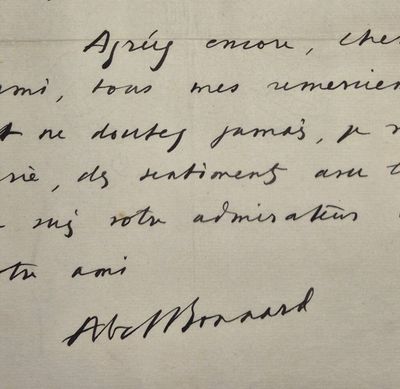 Agréez encore, cher
ami, tous mes remercie
et ne doutez jamais, je v
prie, des sentiments avec l
je suis votre admirateur
votre ami
Abel Bonnard